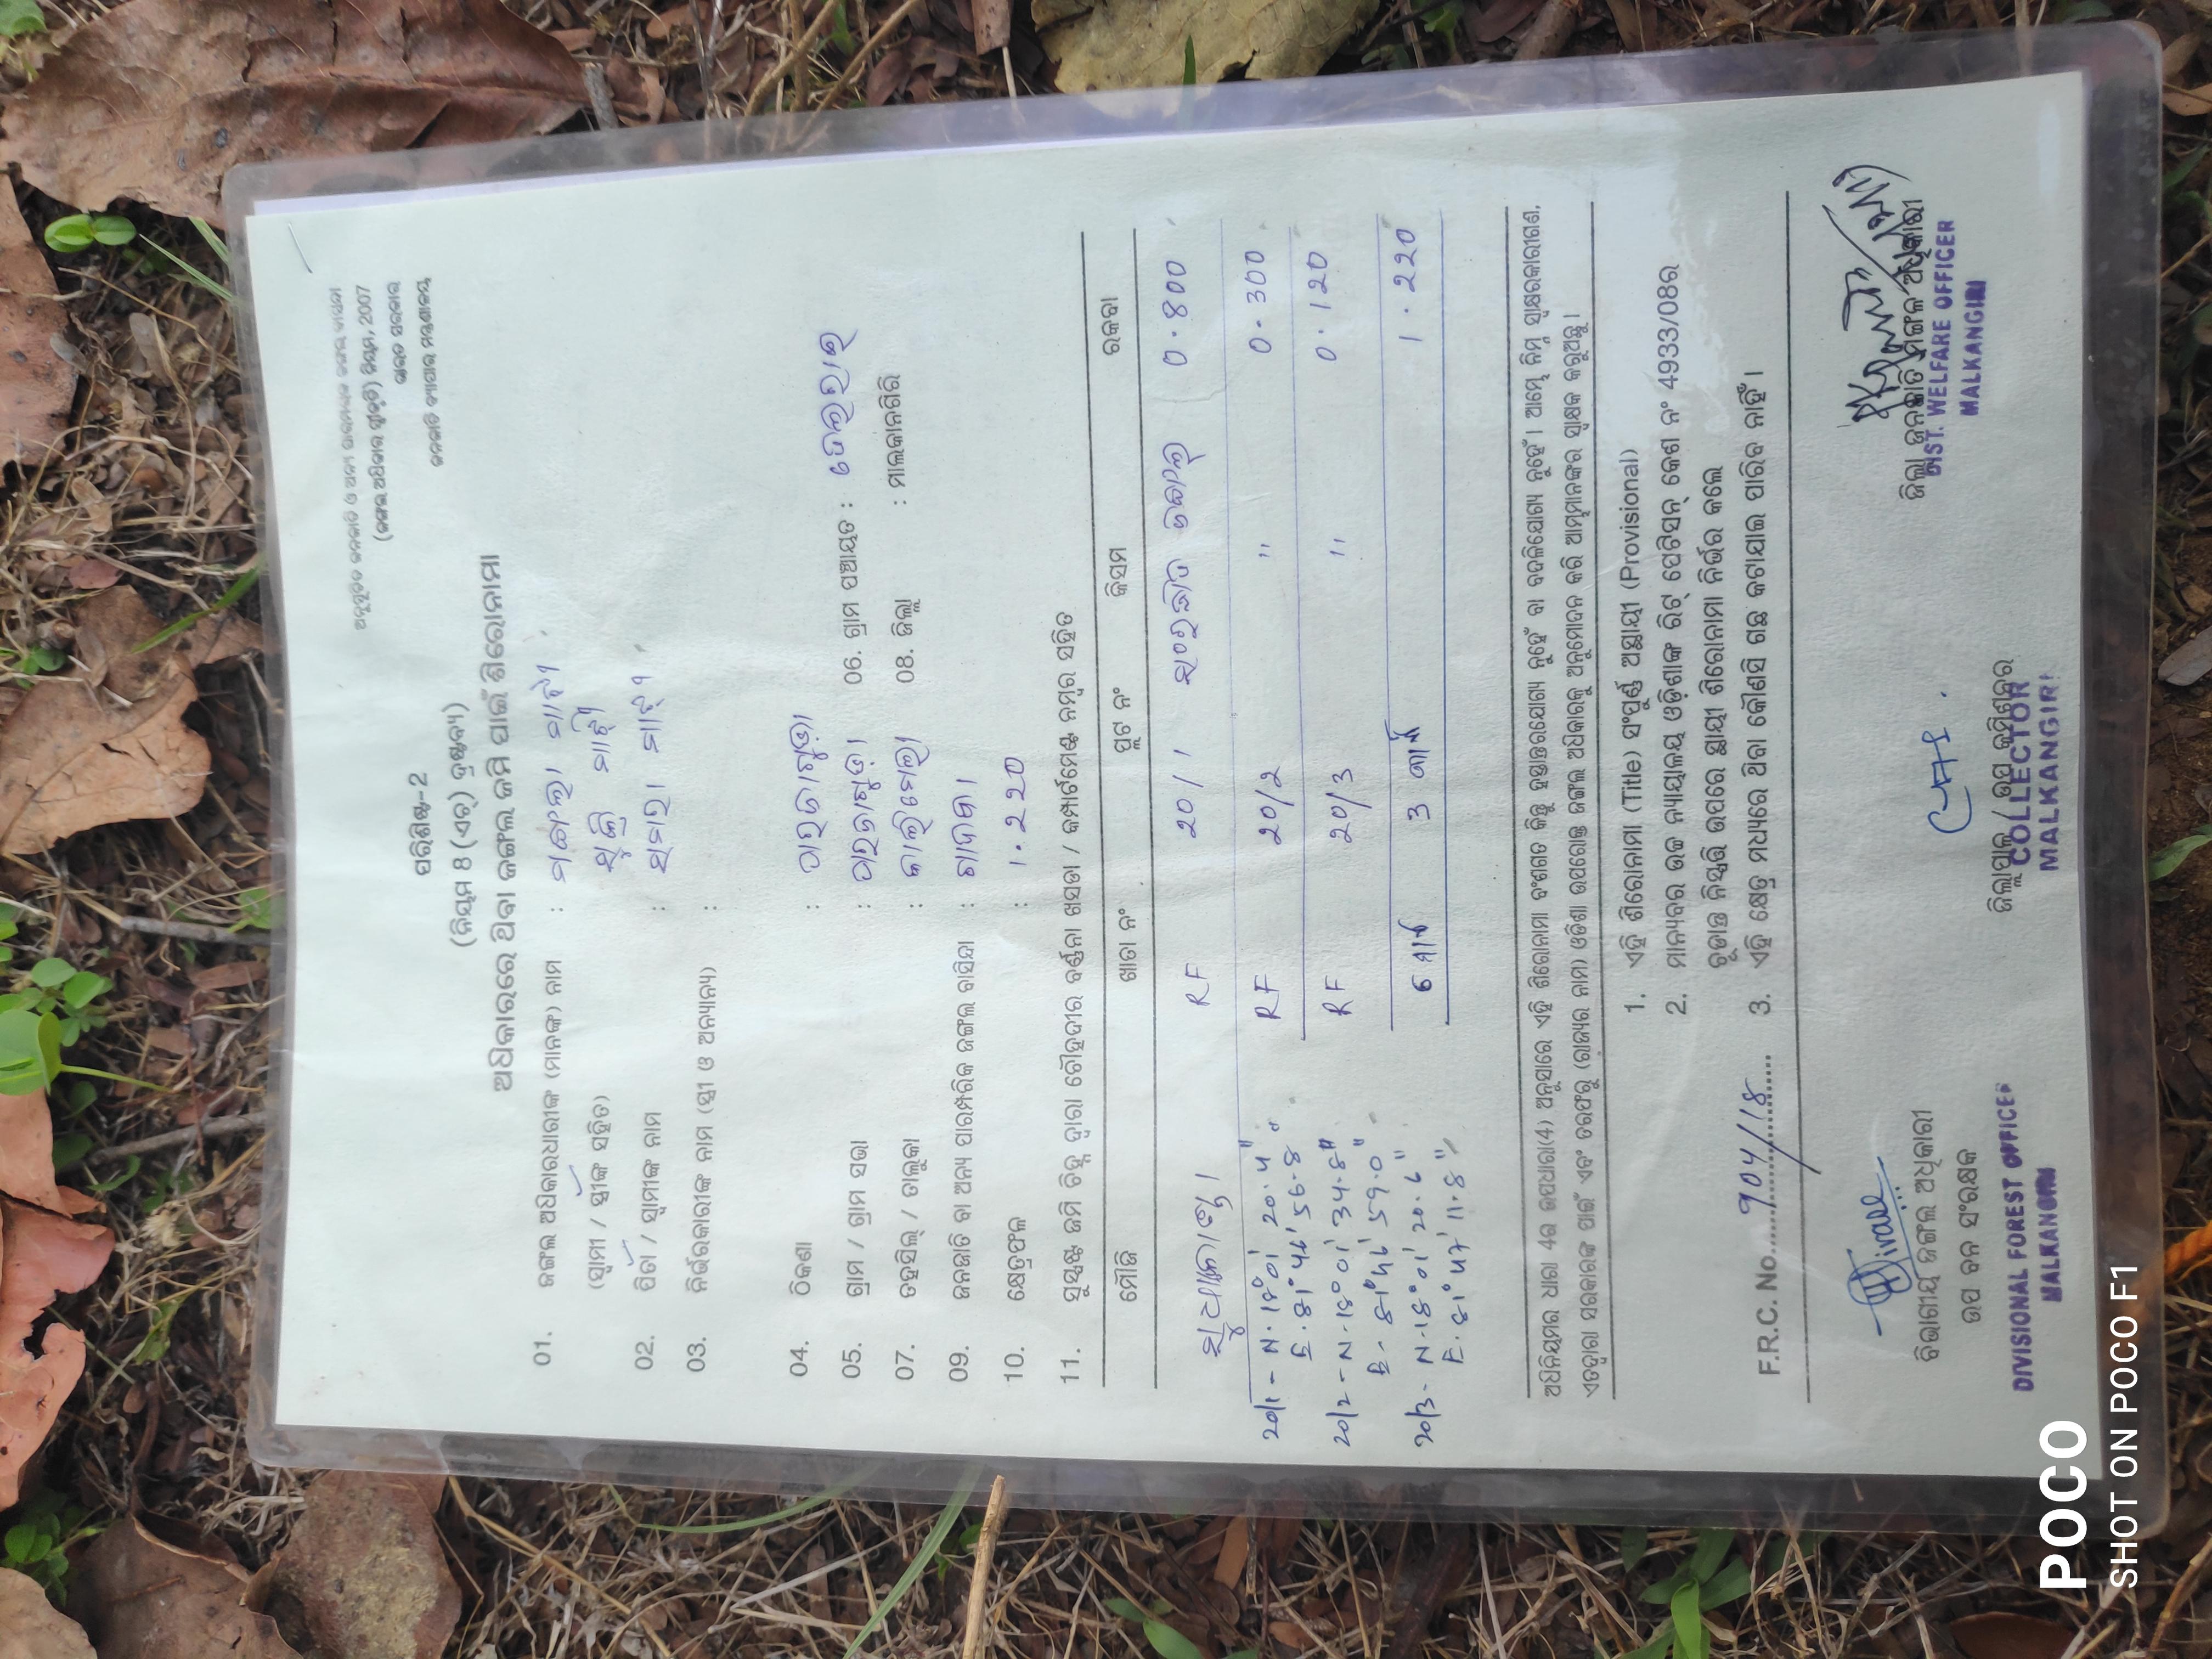 ଅନୁସୂଚିତ ଜନଜାତି ଓ ଅନ୍ୟ ପାରମ୍ପରିକ ଜଙ୍ଗଲ ବାସିନ୍ଦା
(ଜଙ୍ଗଲ ଅଧିକାର ସ୍ୱୀକୃତି) ନିୟମ, 2007
ଭାରତ ସରକାର
ଜନଜାତି ବ୍ୟାପାର ମନ୍ତ୍ରଣାଳୟ
ପରିଶିଷ୍ଟ-2
(ନିୟମ 8 (ଏଚ୍) ଦ୍ରଷ୍ଟବ୍ୟ)
ଅଧିକାରରେ ଥିବା ଜଙ୍ଗଲ ଜମି ପାଇଁ ଶିରୋନାମା
01. ଜଙ୍ଗଲ ଅଧିକାରଧାରୀଙ୍କ (ମାନଙ୍କ) ନାମ :
(ସ୍ୱାମୀ / ସ୍ତ୍ରୀଙ୍କ ସହିତ)
02. ପିତା / ସ୍ୱାମୀଙ୍କ ନାମ :
03. ନିର୍ଭରକାରୀଙ୍କ ନାମ (ସ୍ତ୍ରୀ ଓ ଅନ୍ୟାନ୍ୟ) :
04. ଠିକଣା :
05. ଗ୍ରାମ / ଗ୍ରାମ ସଭା : 06. ଗ୍ରାମ ପଞ୍ଚାୟତ :
07. ତହସିଲ୍ / ତାଲୁକା : 08. ଜିଲ୍ଲା : ମାଲକାନଗିରି
09. ଜନଜାତି ବା ଅନ୍ୟ ପାରମ୍ପରିକ ଜଙ୍ଗଲ ବାସିନ୍ଦା :
10. କ୍ଷେତ୍ରଫଳ : 1.220
11. ସୁସ୍ପଷ୍ଟ ଜମି ଚିହ୍ନ ଦ୍ୱାରା ଚୌହଦ୍ଦୀର ବର୍ଣ୍ଣନା ଖସଡା / କମ୍ପାର୍ଟମେଣ୍ଟ ନମ୍ବର ସହିତ
ମୌଜା ଖାତା ନଂ ପ୍ଲଟ ନଂ କିସମ ରକବା
RF 20/1 0.800
20/1 - N.18°01'20.4" RF 20/2 " 0.300
E.81°46'56.8"
20/2 - N.18°01'34.8" RF 20/3 " 0.120
E.81°46'59.0"
20/3 - N.18°01'20.6" 3 1.220
E.81°47'11.8"
ଅଧିନିୟମର ଧାରା 4ର ଉପଧାରା(4) ଅନୁସାରେ ଏହି ଶିରୋନାମା ବଂଶଗତ କିନ୍ତୁ ହସ୍ତାନ୍ତରଯୋଗ୍ୟ ନୁହେଁ ବା ବଦଳିଯୋଗ୍ୟ ନୁହେଁ । ଆମ୍ଭେ ନିମ୍ନ ସ୍ୱାକ୍ଷରକାରୀଗଣ,
ଏତଦ୍ୱାରା ସରକାରଙ୍କ ପାଇଁ ଏବଂ ତରଫରୁ (ରାଜ୍ୟର ନାମ) ଓଡିଶା ଉପରୋକ୍ତ ଜଙ୍ଗଲ ଅଧିକାରକୁ ଅନୁମୋଦନ କରି ଆମ୍ଭମାନଙ୍କର ସ୍ୱାକ୍ଷର କରୁଅଛୁ ।
1. ଏହି ଶିରୋନାମା (Title) ସଂପୂର୍ଣ୍ଣ ଅସ୍ଥାୟୀ (Provisional)
2. ମାନ୍ୟବର ଉଚ୍ଚ ନ୍ୟାୟାଳୟ ଓଡ଼ିଶାଙ୍କ ରିଟ୍ ପେଟିସନ୍ କେଶ ନଂ 4933/08ର
ଚୂଡାନ୍ତ ନିଷ୍ପତ୍ତି ଉପରେ ସ୍ଥାୟୀ ଶିରୋନାମା ନିର୍ଭର କଲେ
F.R.C. No. 904/18 3. ଏହି କ୍ଷେତ୍ର ମଧ୍ୟରେ ଥିବା କୌଣସି ଗଛ କଟାଯାଇ ପାରିବ ନାହିଁ ।
ବିଭାଗୀୟ ଜଙ୍ଗଲ ଅଧିକାରୀ
ଉପ ବନ ସଂରକ୍ଷକ
DIVISIONAL FOREST OFFICER
MALKANGIRI
ଜିଲ୍ଲାପାଳ / ଉପ କମିଶନର
COLLECTOR
MALKANGIRI
ଜିଲ୍ଲା ଜନଜାତି ମଙ୍ଗଳ ଅଧିକାରୀ
DIST. WELFARE OFFICER
MALKANGIRI
POCO
SHOT ON POCO F1